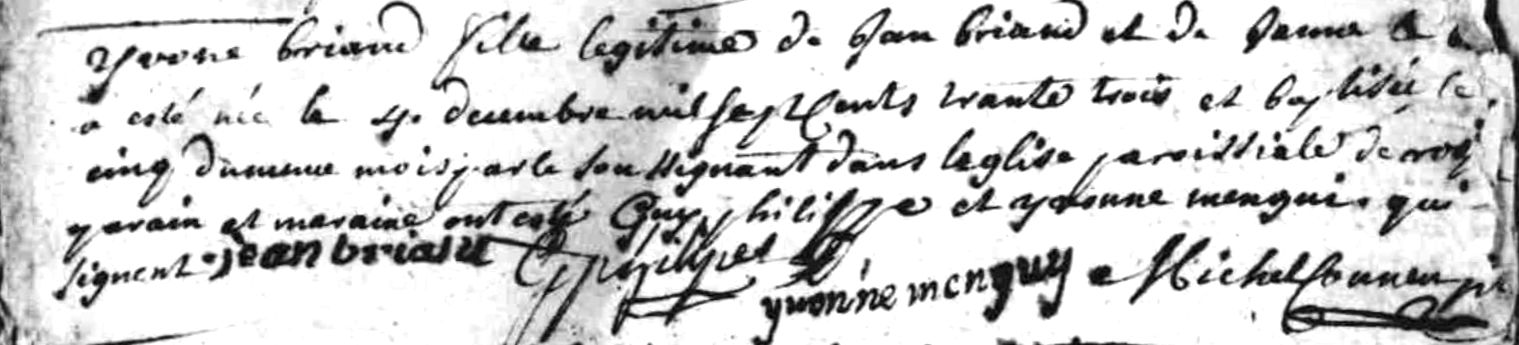 yvone briand fille legitime de Jan briand et de Janne
a esté née le 4e decembre mil sept cents trante trois et baptisée le
cinq du meme mois par le soussignant dans leglise paroissiale de
parain et maraine ont esté Guy philippe et yvonne menguy qui
signent jean briand G philippe
yvonne menguy Michel